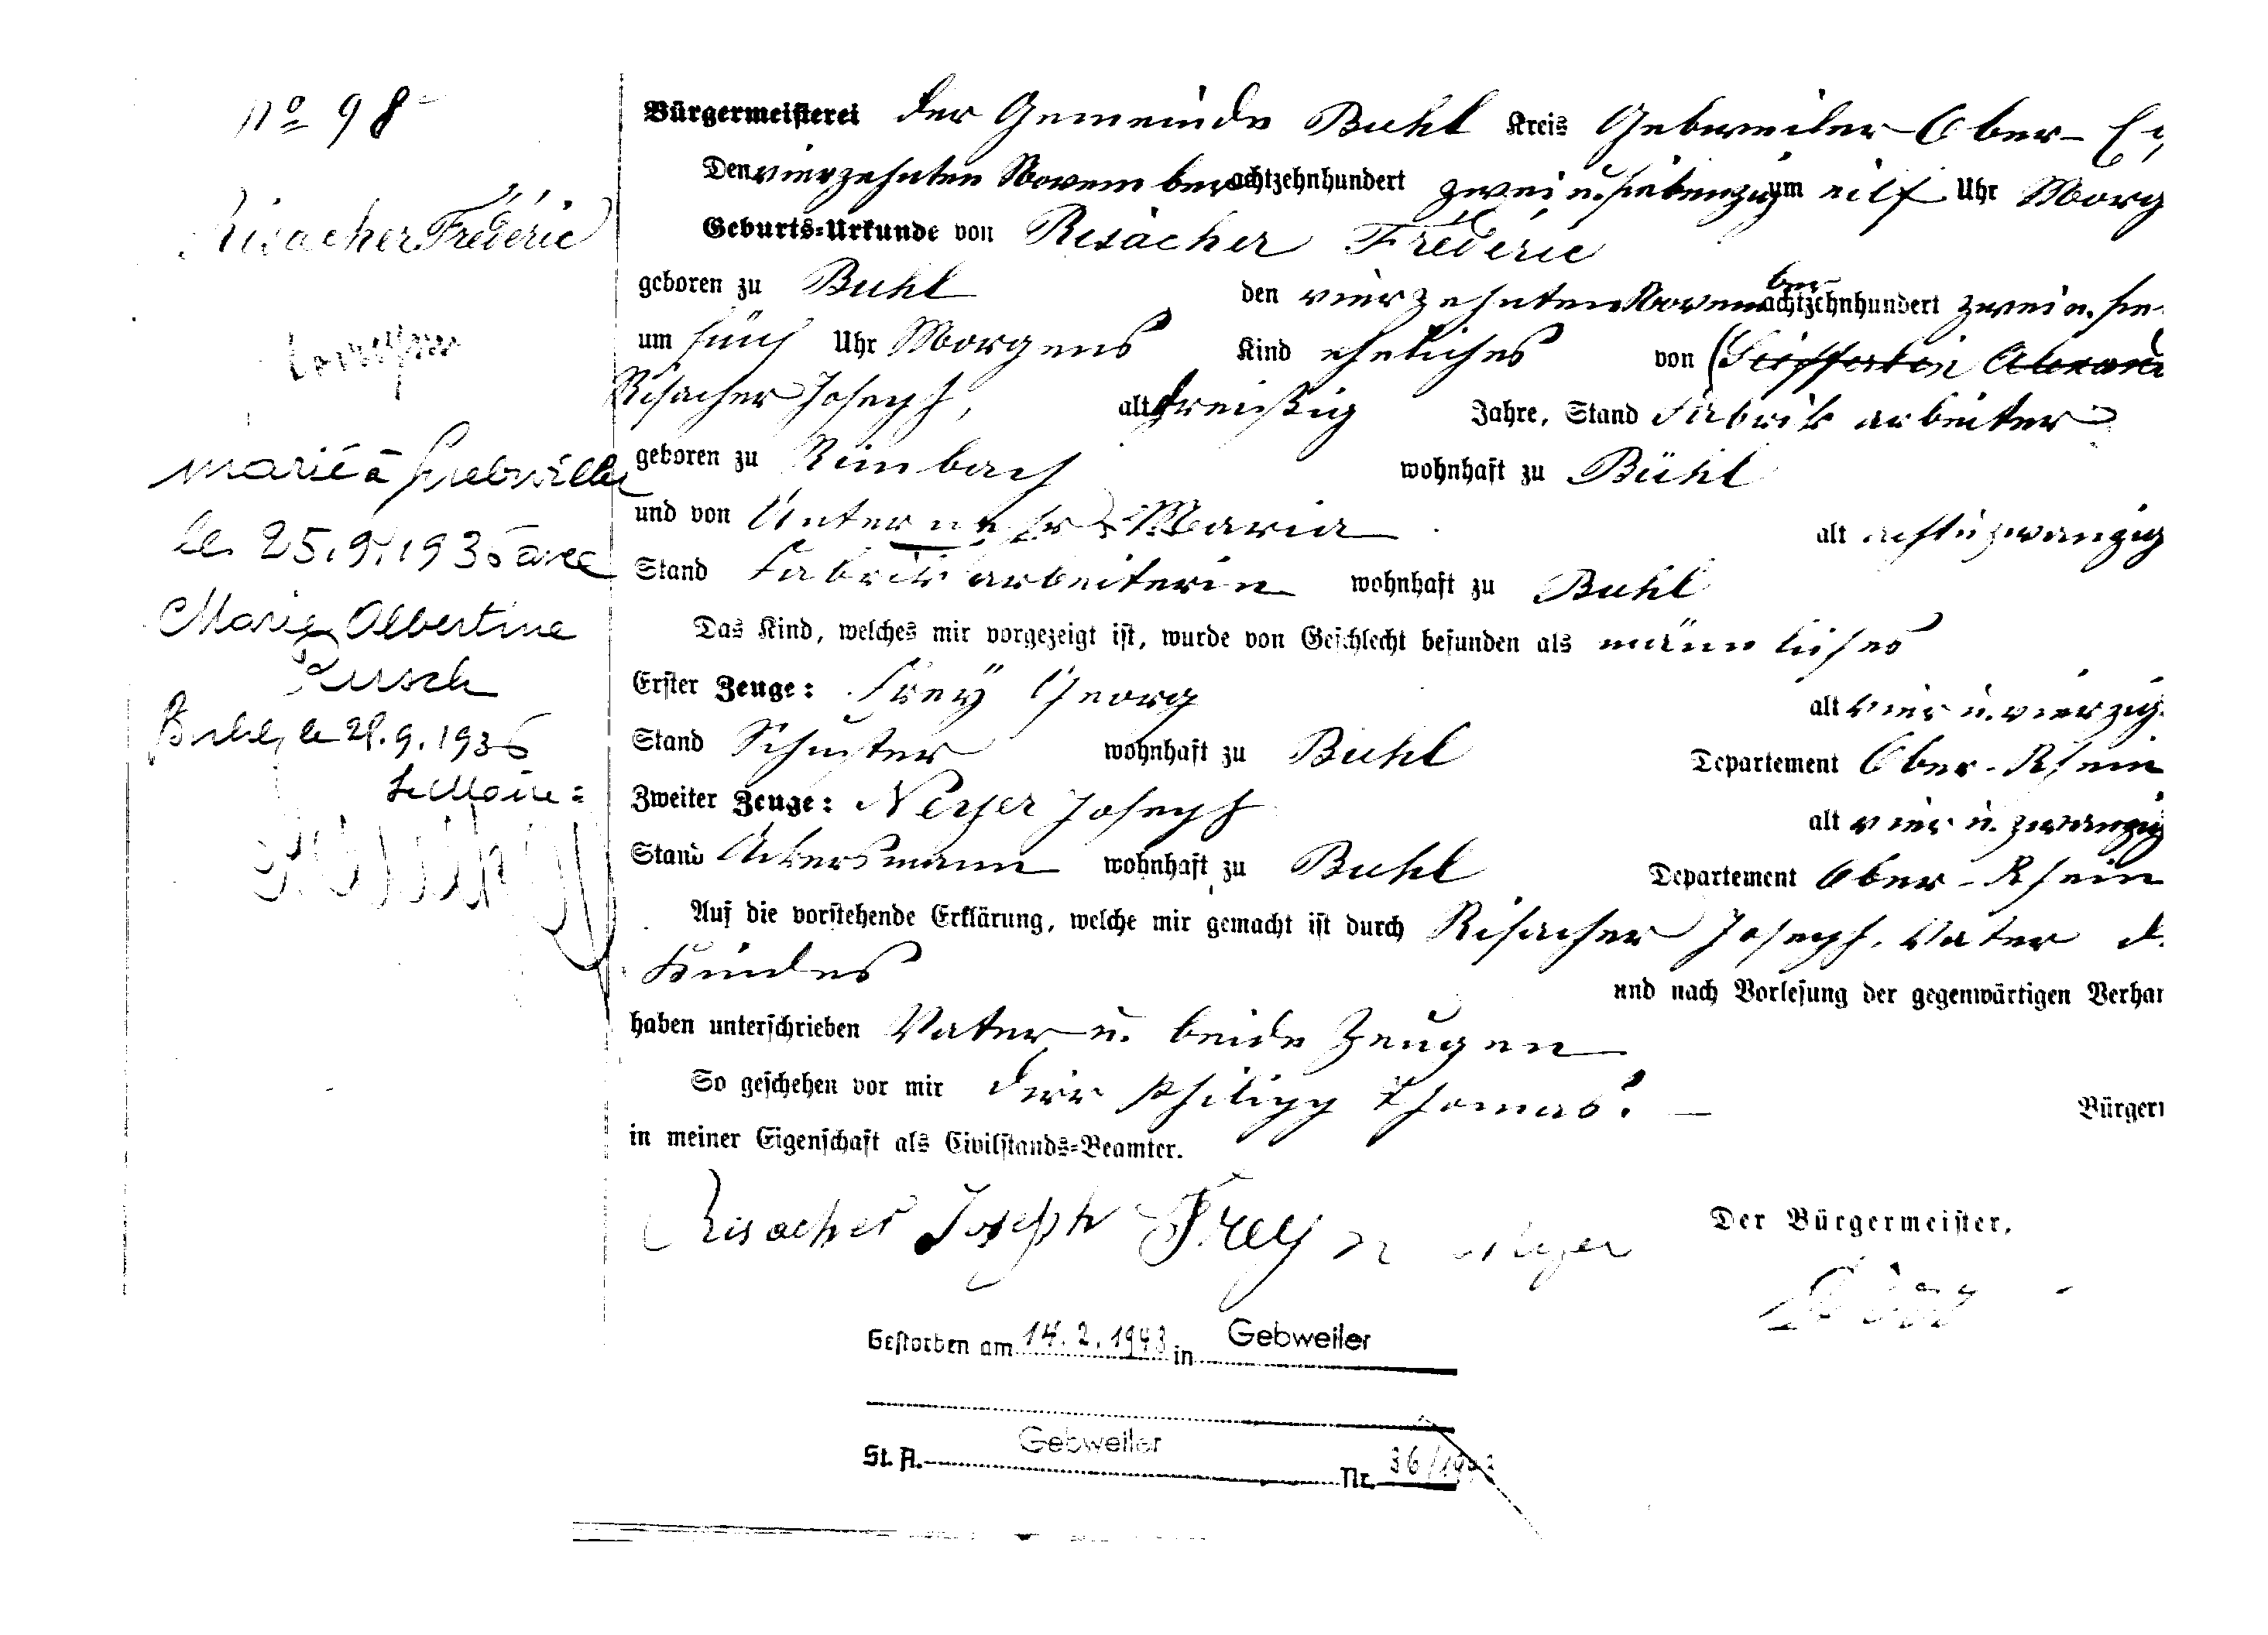 No 98
Risacher Frédéric
marié à Guebwiller
le 25.9.1936 avec
Marie Albertine
Rusch
Buhl, le 28.9.1936
Le Maire:
Bürgermeisterei der Gemeinde Buhl Kreis Gebweiler Ober-
Den vierzehnten November achtzehnhundert zwei u. siebenzig um eilf Uhr Morg
Geburts-Urkunde von Risacher Frédéric
geboren zu Buhl den vierzehnten November achtzehnhundert zwei u. sie
um fünf Uhr Morgens Kind eheliches von
Risacher Joseph, alt dreißig Jahre, Stand Fabrikarbeiter
geboren zu Rimbach wohnhaft zu Bühl
und von Unternehr Maria alt acht u zwanzig
Stand Fabrikarbeiterin wohnhaft zu Buhl
Das Kind, welches mir vorgezeigt ist, wurde von Geschlecht befunden als männliches
Erster Zeuge: Frey Georg alt vier u. vierzig
Stand Schuster wohnhaft zu Buhl Departement Ober-Rhein
Zweiter Zeuge: Neyer Joseph alt vier u. zwanzig
Stand Ackersmann wohnhaft zu Buhl Departement Ober-Rhein
Auf die vorstehende Erklärung, welche mir gemacht ist durch Risacher Joseph, Vater d.
Kindes und nach Vorlesung der gegenwärtigen Verhan
haben unterschrieben Vater u. beide Zeugen
So geschehen vor mir Dirr Philipp Thomas. Bürgerm
in meiner Eigenschaft als Civilstands-Beamter.
Risacher Joseph Frey
Der Bürgermeister,
Gestorben am 14.2.1943 in Gebweiler
St. A. Gebweiler Nr. 36/1943